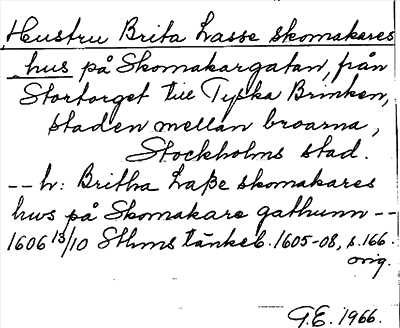 Hustru Brita Lasse skomakares
hus på Skomakargatan, från
Stortorget till Tyska Brinken,
staden mellan broarna,
Stockholms stad.
-- h: Britha Laße skomakares
hws på Skomakare gathunn --
1606 13/10 Sthms tänkeb. 1605-08, s. 166.
orig.
G.E. 1966.